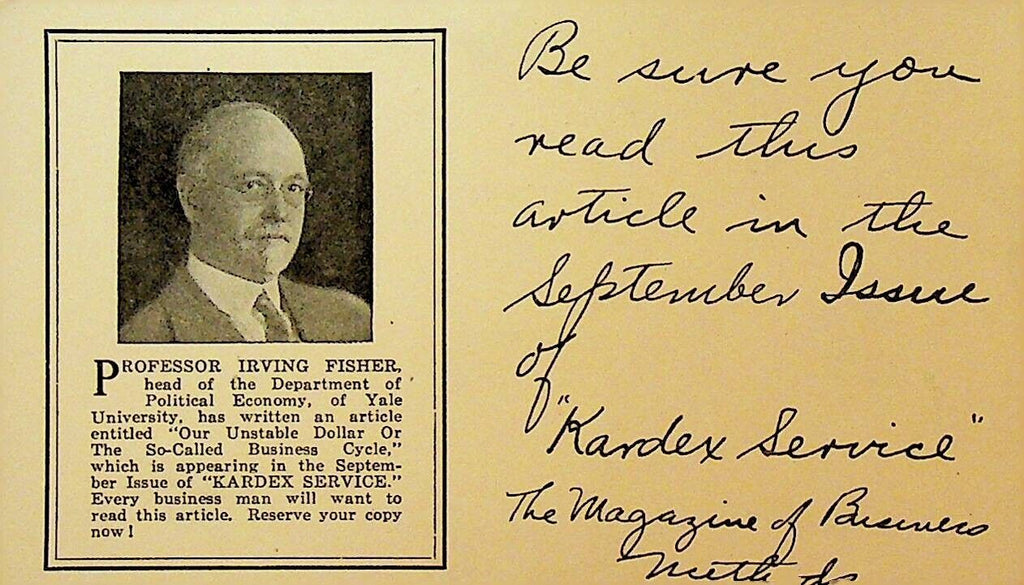 PROFESSOR IRVING FISHER,
head of the Department of
Political Economy, of Yale
University, has written an article
entitled "Our Unstable Dollar Or
The So-Called Business Cycle,"
which is appearing in the Septem-
ber Issue of "KARDEX SERVICE."
Every business man will want to
read this article. Reserve your copy
now!
Be sure you
read this
article in the
September Issue
of
"Kardex Service"
The Magazine of Business